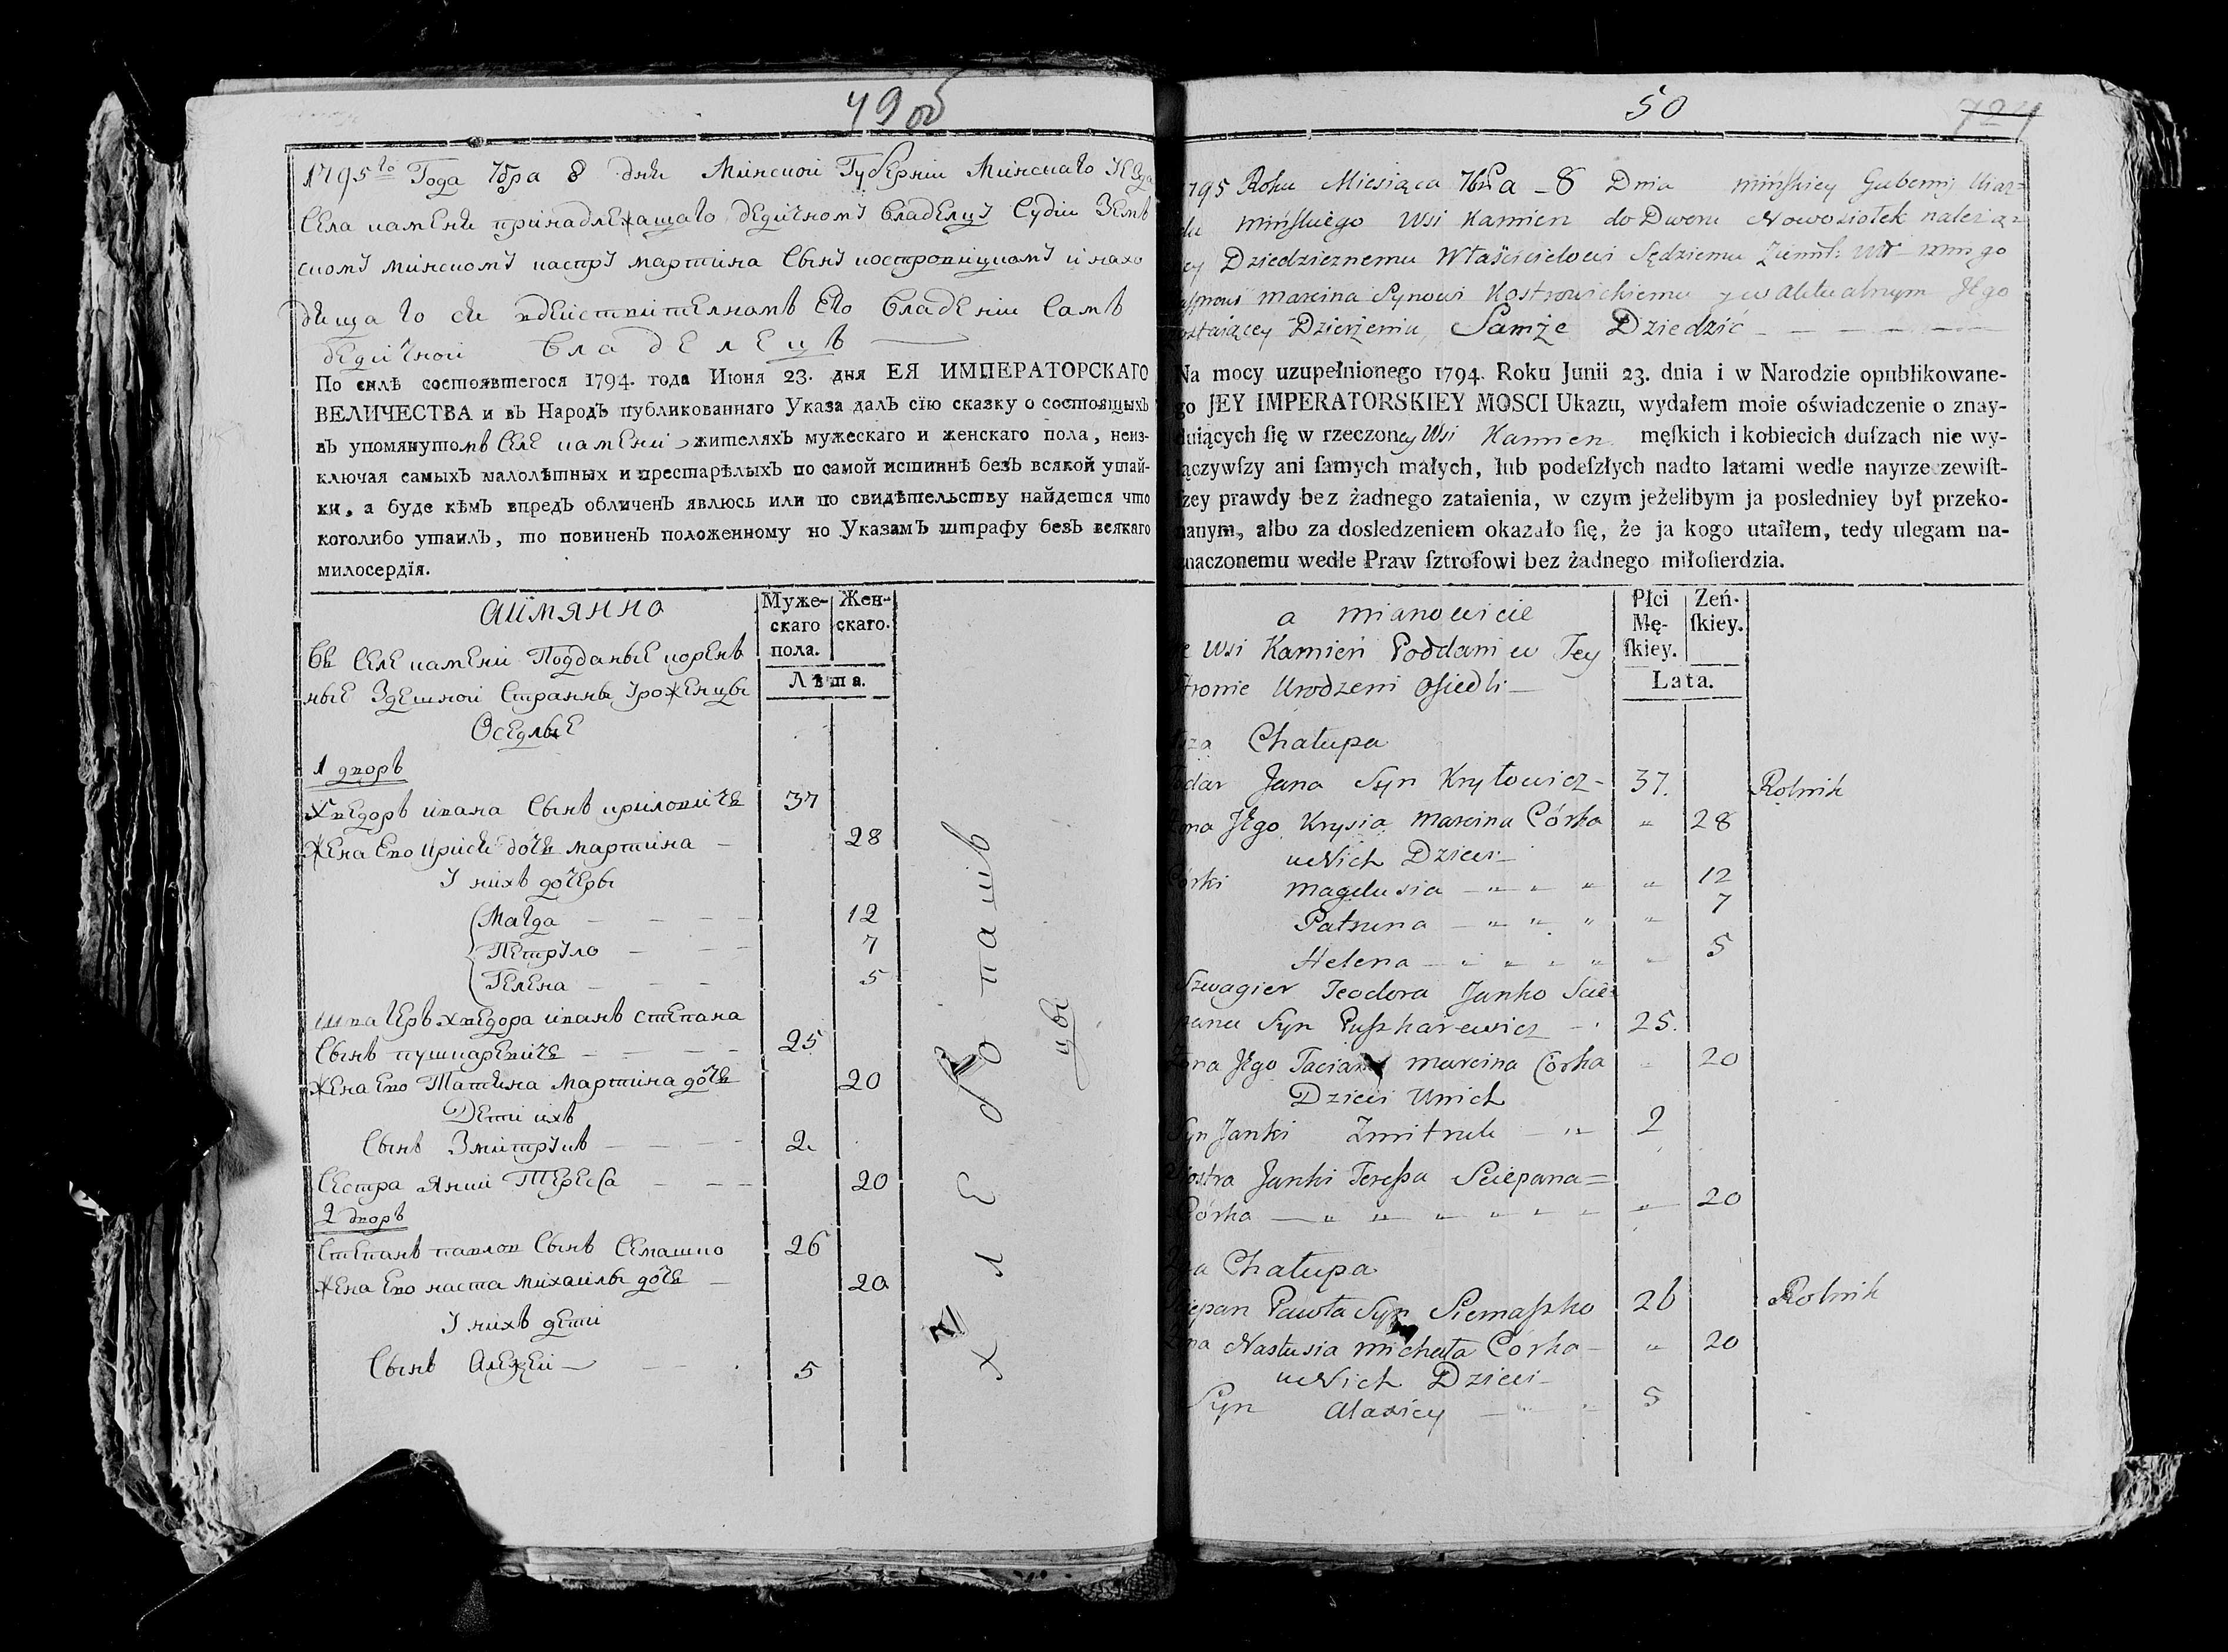 49 об
1795го Года 7бра 8 дня Минской Губерніи Минскаго
Села Камени принадлежащаго дедичному владелцу Судіи Земъ
скому Минскому Каспру Мартина Сыну Костровицкому и нахо
дящаго ся вдействителномъ Его владеніи Самъ
дедичной владелецъ
По силѣ состоявшегося 1794. года Июня 23. дня ЕЯ ИМПЕРАТОРСКАГО
ВЕЛИЧЕСТВА и въ Народъ публикованнаго Указа далъ сїю сказку о состоящыхъ
въ упомянутомъ Селе Камени жителяхъ мужескаго и женскаго пола, неиз-
ключая самыхъ малолѣтныхъ и престарѣлыхъ по самой истиннѣ безъ всякой утай-
ки, а буде кѣмъ впредъ обличенъ явлюсь или по свидѣтельству найдется что
коголибо утаилъ, то повиненъ положенному по Указамъ штрафу безъ всякаго
милосердїя.
Аимянно
Муже-скаго пола.
Жен-скаго.
Лѣта.
Ве Селе Камени Подданые корень
ные Здешной Странны Уроженцы
Оседлые
1 дворъ
Хведоръ Ивана Сынъ Криловичь 37
Жена Ево Крися дочь Мартина 28
У нихъ дочеры
Магда 12
Петруло 7
Гелена 5
Швагеръ Хведора Иванъ Степана
Сынъ Пушкаревичь 25
Жена Ево Татяна Мартина дочь 20
Дети ихъ
Сынъ Змитрукъ 2
Сестра Янки Тереса 20
2 дворъ
Степанъ Павлов Сынъ Семашко 26
Жена Ево Наста Михаилы дочь 20
У нихъ дети
Сынъ Алезей 5
Хлебопашъ
цы
50
724
795 Roku Miesiąca 7bra 8 Dnia Mińskiey Gubernij Uiaz=
du Mińskiego Wsi Kamień do Dworu Nowosiołek należą=
cy Dziedzicznemu Właścicielowi Sędziemu Ziemk:
Marcina Synowi Kostrowickiemu y w aktualnym Jego
ostaiącey Dzierżeniu, Samże Dziedzić
Na mocy uzupełnionego 1794. Roku Junii 23. dnia i w Narodzie opublikowane-
go JEY IMPERATORSKIEY MOSCI Ukazu, wydałem moie oświadczenie o znay-
duiących ſię w rzeczoney Wsi Kamien męſkich i kobiecich duſzach nie wy-
ączywſzy ani ſamych małych, lub podeſzłych nadto latami wedle nayrzeczewiſt-
zey prawdy bez żadnego zataienia, w czym jeżelibym ja posledniey był przeko-
nanym, albo za dosledzeniem okazało ſię, że ja kogo utaiłem, tedy ulegam na-
znaczonemu wedle Praw ſztrofowi bez żadnego miłoſierdzia.
a mianowicie
Płci Mę-ſkiey.
Zeń-ſkiey.
Lata.
e Wsi Kamień Poddani w Tey
Stronie Urodzeni Osiedli
sza Chałupa
Todar Jana Syn Kryłowicz 37. Rolnik
Zona Jego Krysia Marcina Córka 28
u Nich Dzieci
Córki Magdusia 12
Patruna 7
Helena 5
Szwagier Teodora Janko Scie=
pana Syn Puszkarewicz 25.
Zona Jego Taciana Marcina Córka 20
Dzieci Unich
Syn Janki Zmitruk 2
Siostra Janki Teressa Sciepana=
Córka 20
2a Chałupa
Sciepan Pawła Syn Siemaszko 26 Rolnik
Zona Nastusia Michała Córka 20
u Nich Dzieci
Syn Alaxiey 5